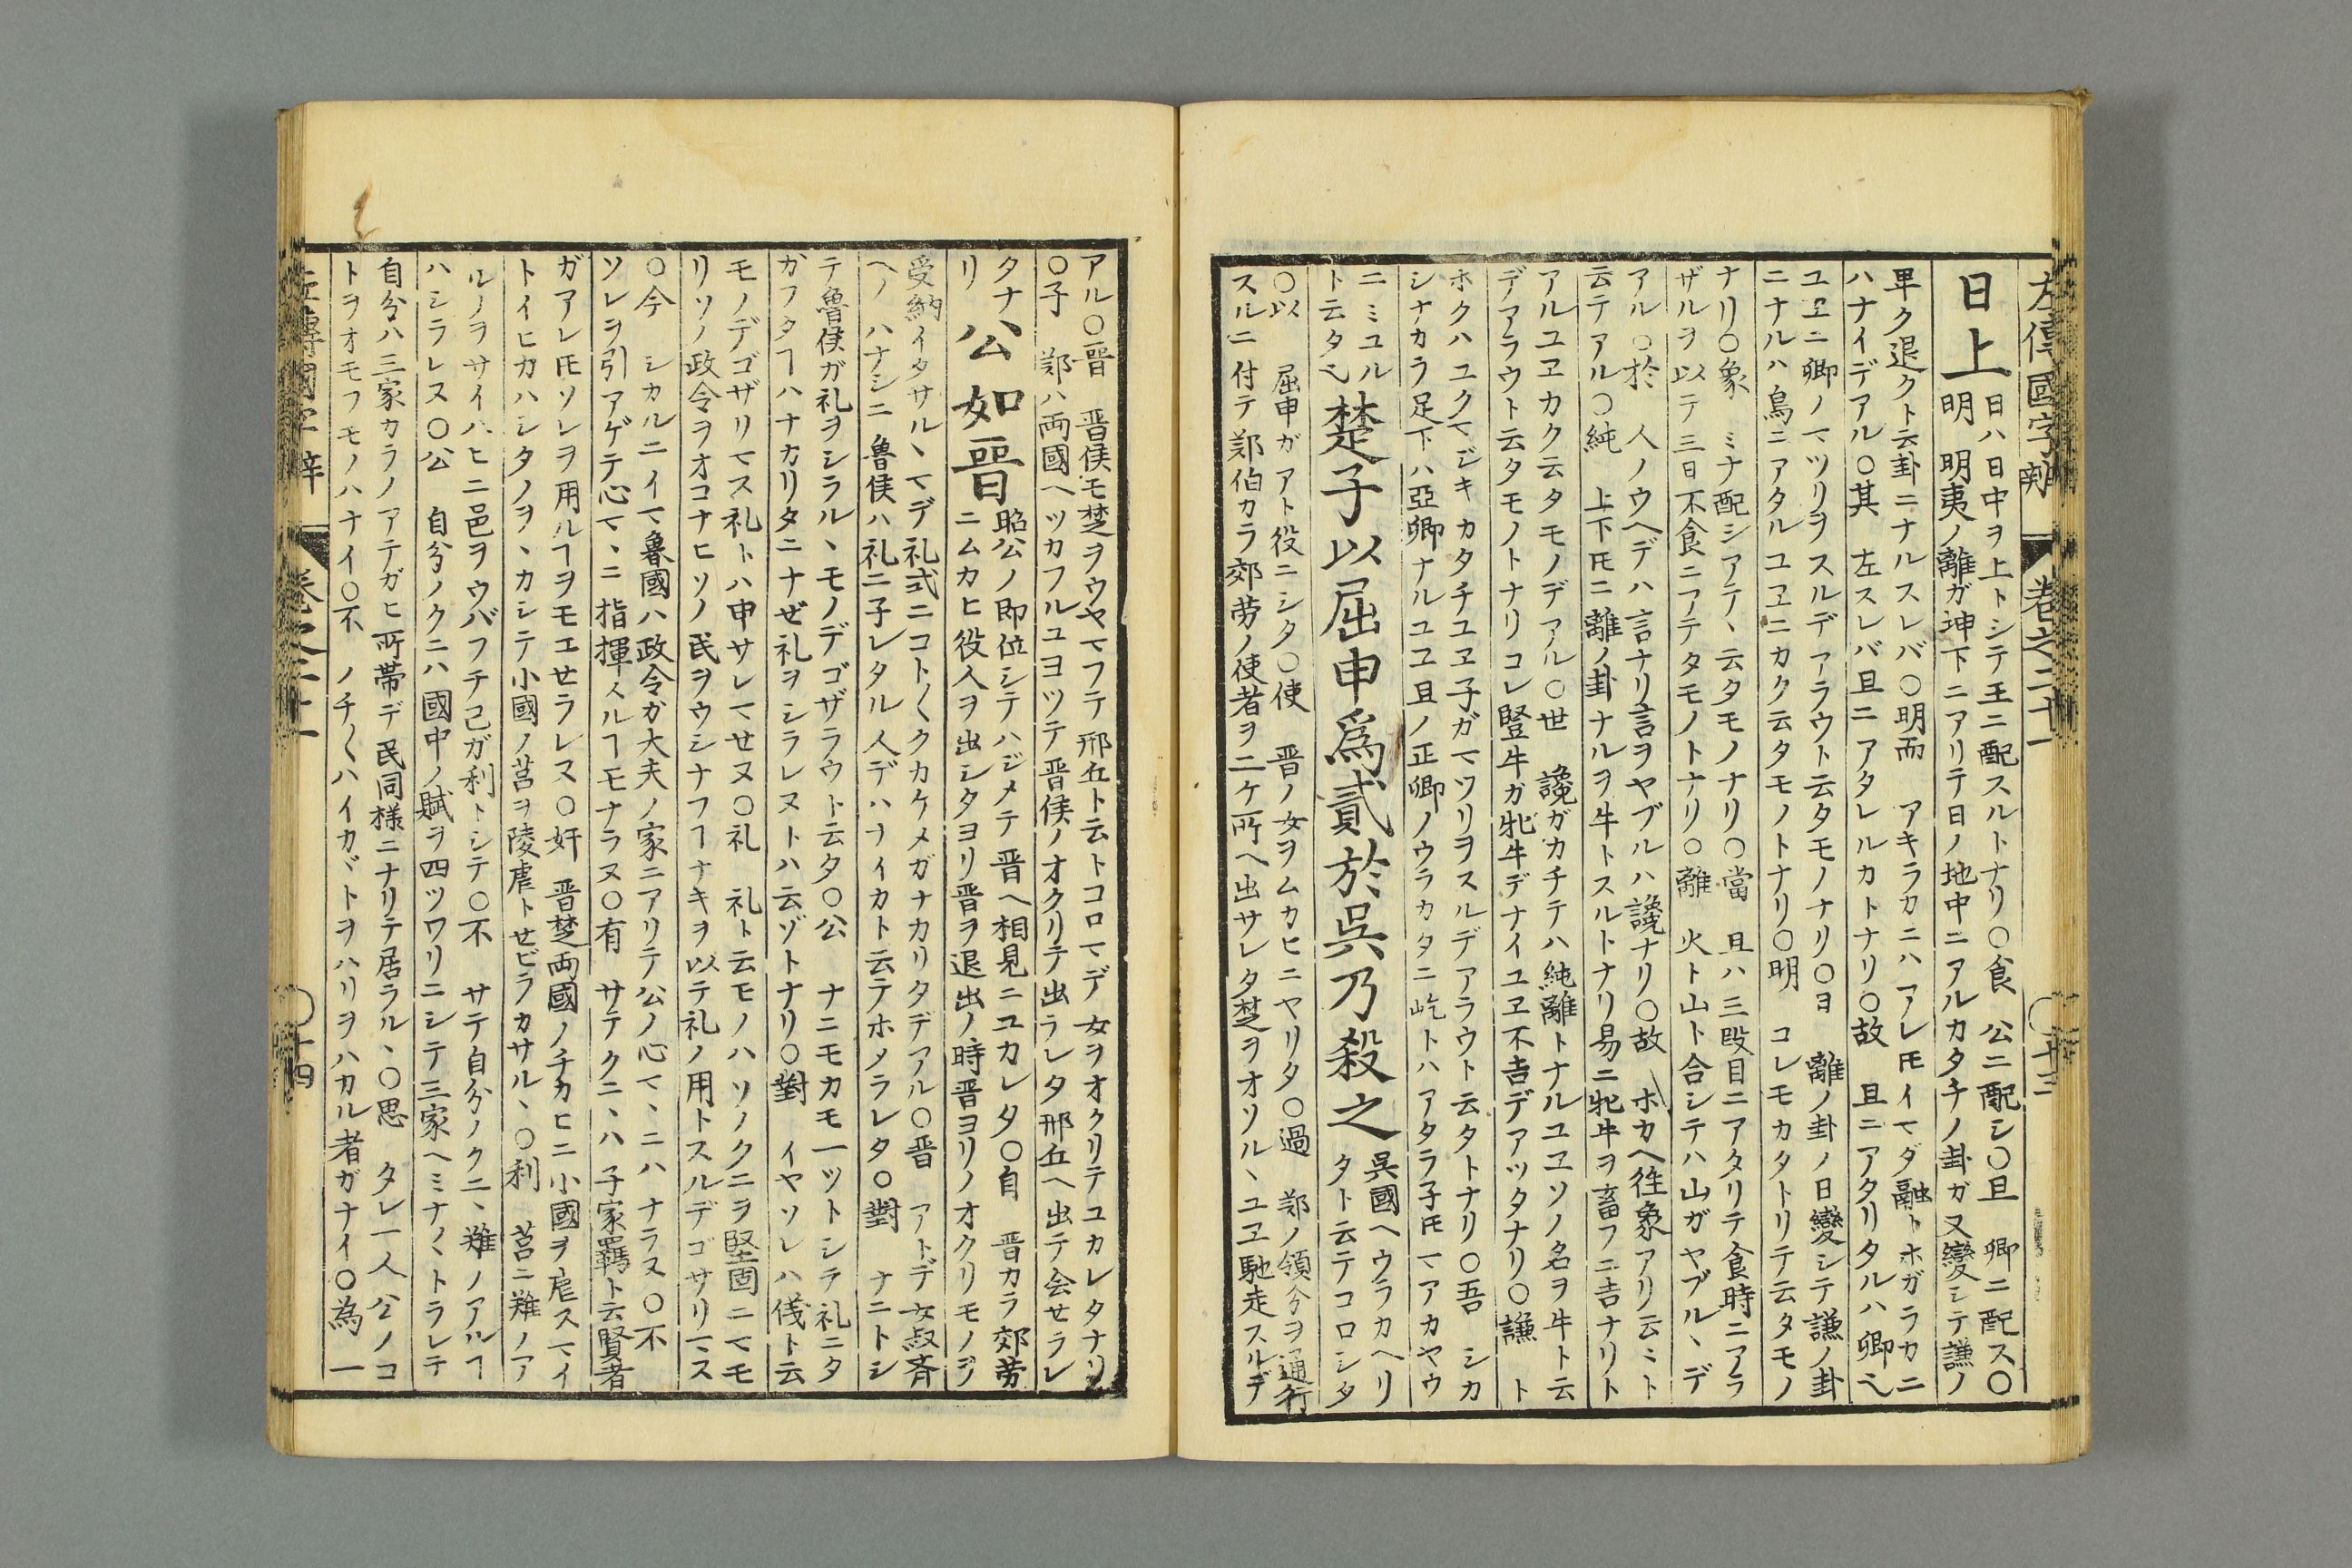 左傳國字辨　卷之二十一　〇十三
日上
日ハ日中ヲ上トシテ王ニ配スルトナリ〇食　公ニ配シ〇旦　卿ニ配ス〇
明　明夷ノ離ガ坤下ニアリテ日ノ地中ニアルカタチノ卦ガ又變シテ謙ノ
卑ク退クト云卦ニナルスレバ〇明而　アキラカニハアレ𪜈イマダ融トホガラカニ
ハナイデアル〇其　左スレバ旦ニアタレルカトナリ〇故　旦ニアタリタルハ卿也
ユヱニ卿ノマツリヲスルデアラウト云タモノナリ〇日　離ノ卦ノ日變シテ謙ノ卦
ニナルハ鳥ニアタルユヱニカク云タモノトナリ〇明　コレモカタトリテ云タモノ
ナリ〇象　ミナ配シアテヽ云タモノナリ〇當　旦ハ三段目ニアタリテ食時ニアラ
ザルヲ以テ三日不食ニアテタモノトナリ〇離　火ト山ト合シテハ山ガヤブルヽデ
アル〇於　人ノウヘデハ言ナリ言ヲヤブルハ讒ナリ〇故　ホカヘ往象アリ云々ト
云テアル〇純　上下𪜈ニ離ノ卦ナルヲ牛トスルトナリ易ニ牝牛ヲ畜フニ吉ナリト
アルユヱカク云タモノデアル〇世　讒ガカチテハ純離トナルユヱソノ名ヲ牛ト云
デアラウト云タモノトナリコレ豎牛ガ牝牛デナイユヱ不吉デアツタナリ〇謙　ト
ホクハユクマジキカタチユヱ子ガマツリヲスルデアラウト云タトナリ〇吾　シカ
シナカラ足下ハ亞卿ナルユヱ旦ノ正卿ノウラカタニ屹トハアタラ子𪜈マアカヤウ
ニミユル
ト云タ也
楚子以屈申爲貳於呉乃殺之
呉國ヘウラカヘリ
タト云テコロシタ
〇以　屈申ガアト役ニシタ〇使　晋ノ女ヲムカヒニヤリタ〇過　鄭ノ領分ヲ通行
スルニ付テ鄭伯カラ郊勞ノ使者ヲ二ケ所ヘ出サレタ楚ヲオソルヽユヱ馳走スルデ
アル〇晋　晋侯モ楚ヲウヤマフテ邢丘ト云トコロマデ女ヲオクリテユカレタナリ
〇子　鄭ハ両國ヘツカフルユヨツテ晋侯ノオクリテ出ラレタ邢丘ヘ出テ会せラレ
タナ
リ
公如晋
昭公ノ即位シテハジメテ晋ヘ相見ニユカレタ〇自　晋カラ郊勞
ニムカヒ役人ヲ出シタヨリ晋ヲ退出ノ時晋ヨリノオクリモノヲ
受納イタサルヽマデ礼式ニコト〱クカケメガナカリタデアル〇晋　アトデ女叔斉
ヘノハナシニ魯侯ハ礼ニ子レタル人デハナイカト云テホメラレタ〇對　ナニトシ
テ魯侯ガ礼ヲシラルヽモノデゴザラウト云タ〇公　ナニモカモ一ツトシテ礼ニタ
ガフタヿハナカリタニナぜ礼ヲシラレヌトハ云ゾトナリ〇對　イヤソレハ儀ト云
モノデゴザリマス礼トハ申サレマせヌ〇礼　礼ト云モノハソノクニヲ堅固ニマモ
リソノ政令ヲオコナヒソノ民ヲウシナフヿナキヲ以テ礼ノ用トスルデゴサリマス
〇今　シカルニイマ魯國ハ政令ガ大夫ノ家ニアリテ公ノ心マヽニハナラヌ〇不
ソレヲ引アゲテ心マヽニ指揮スルヿモナラヌ〇有　サテクニヽハ子家羈ト云賢者
ガアレ𪜈ソレヲ用ルヿヲモエせラレヌ〇奸　晋楚両國ノチカヒニ小國ヲ虐スマイ
トイヒカハシタノヲヽカシテ小國ノ莒ヲ陵虐トせビラカサルヽ〇利　莒ニ難ノア
ルノヲサイハヒニ邑ヲウバフチ己ガ利トシテ〇不　サテ自分ノクニヽ難ノアルヿ
ハシラレヌ〇公　自分ノクニハ國中ノ賦ヲ四ツワリニシテ三家ヘミナ〱トラレテ
自分ハ三家カラノアテガヒ所帯デ民同様ニナリテ居ラルヽ〇思　タレ一人公ノコ
トヲオモフモノハナイ〇不　ノチ〱ハイカヾトヲハリヲハカル者ガナイ〇為　一
左傳國字辨　卷之二十一　〇十四